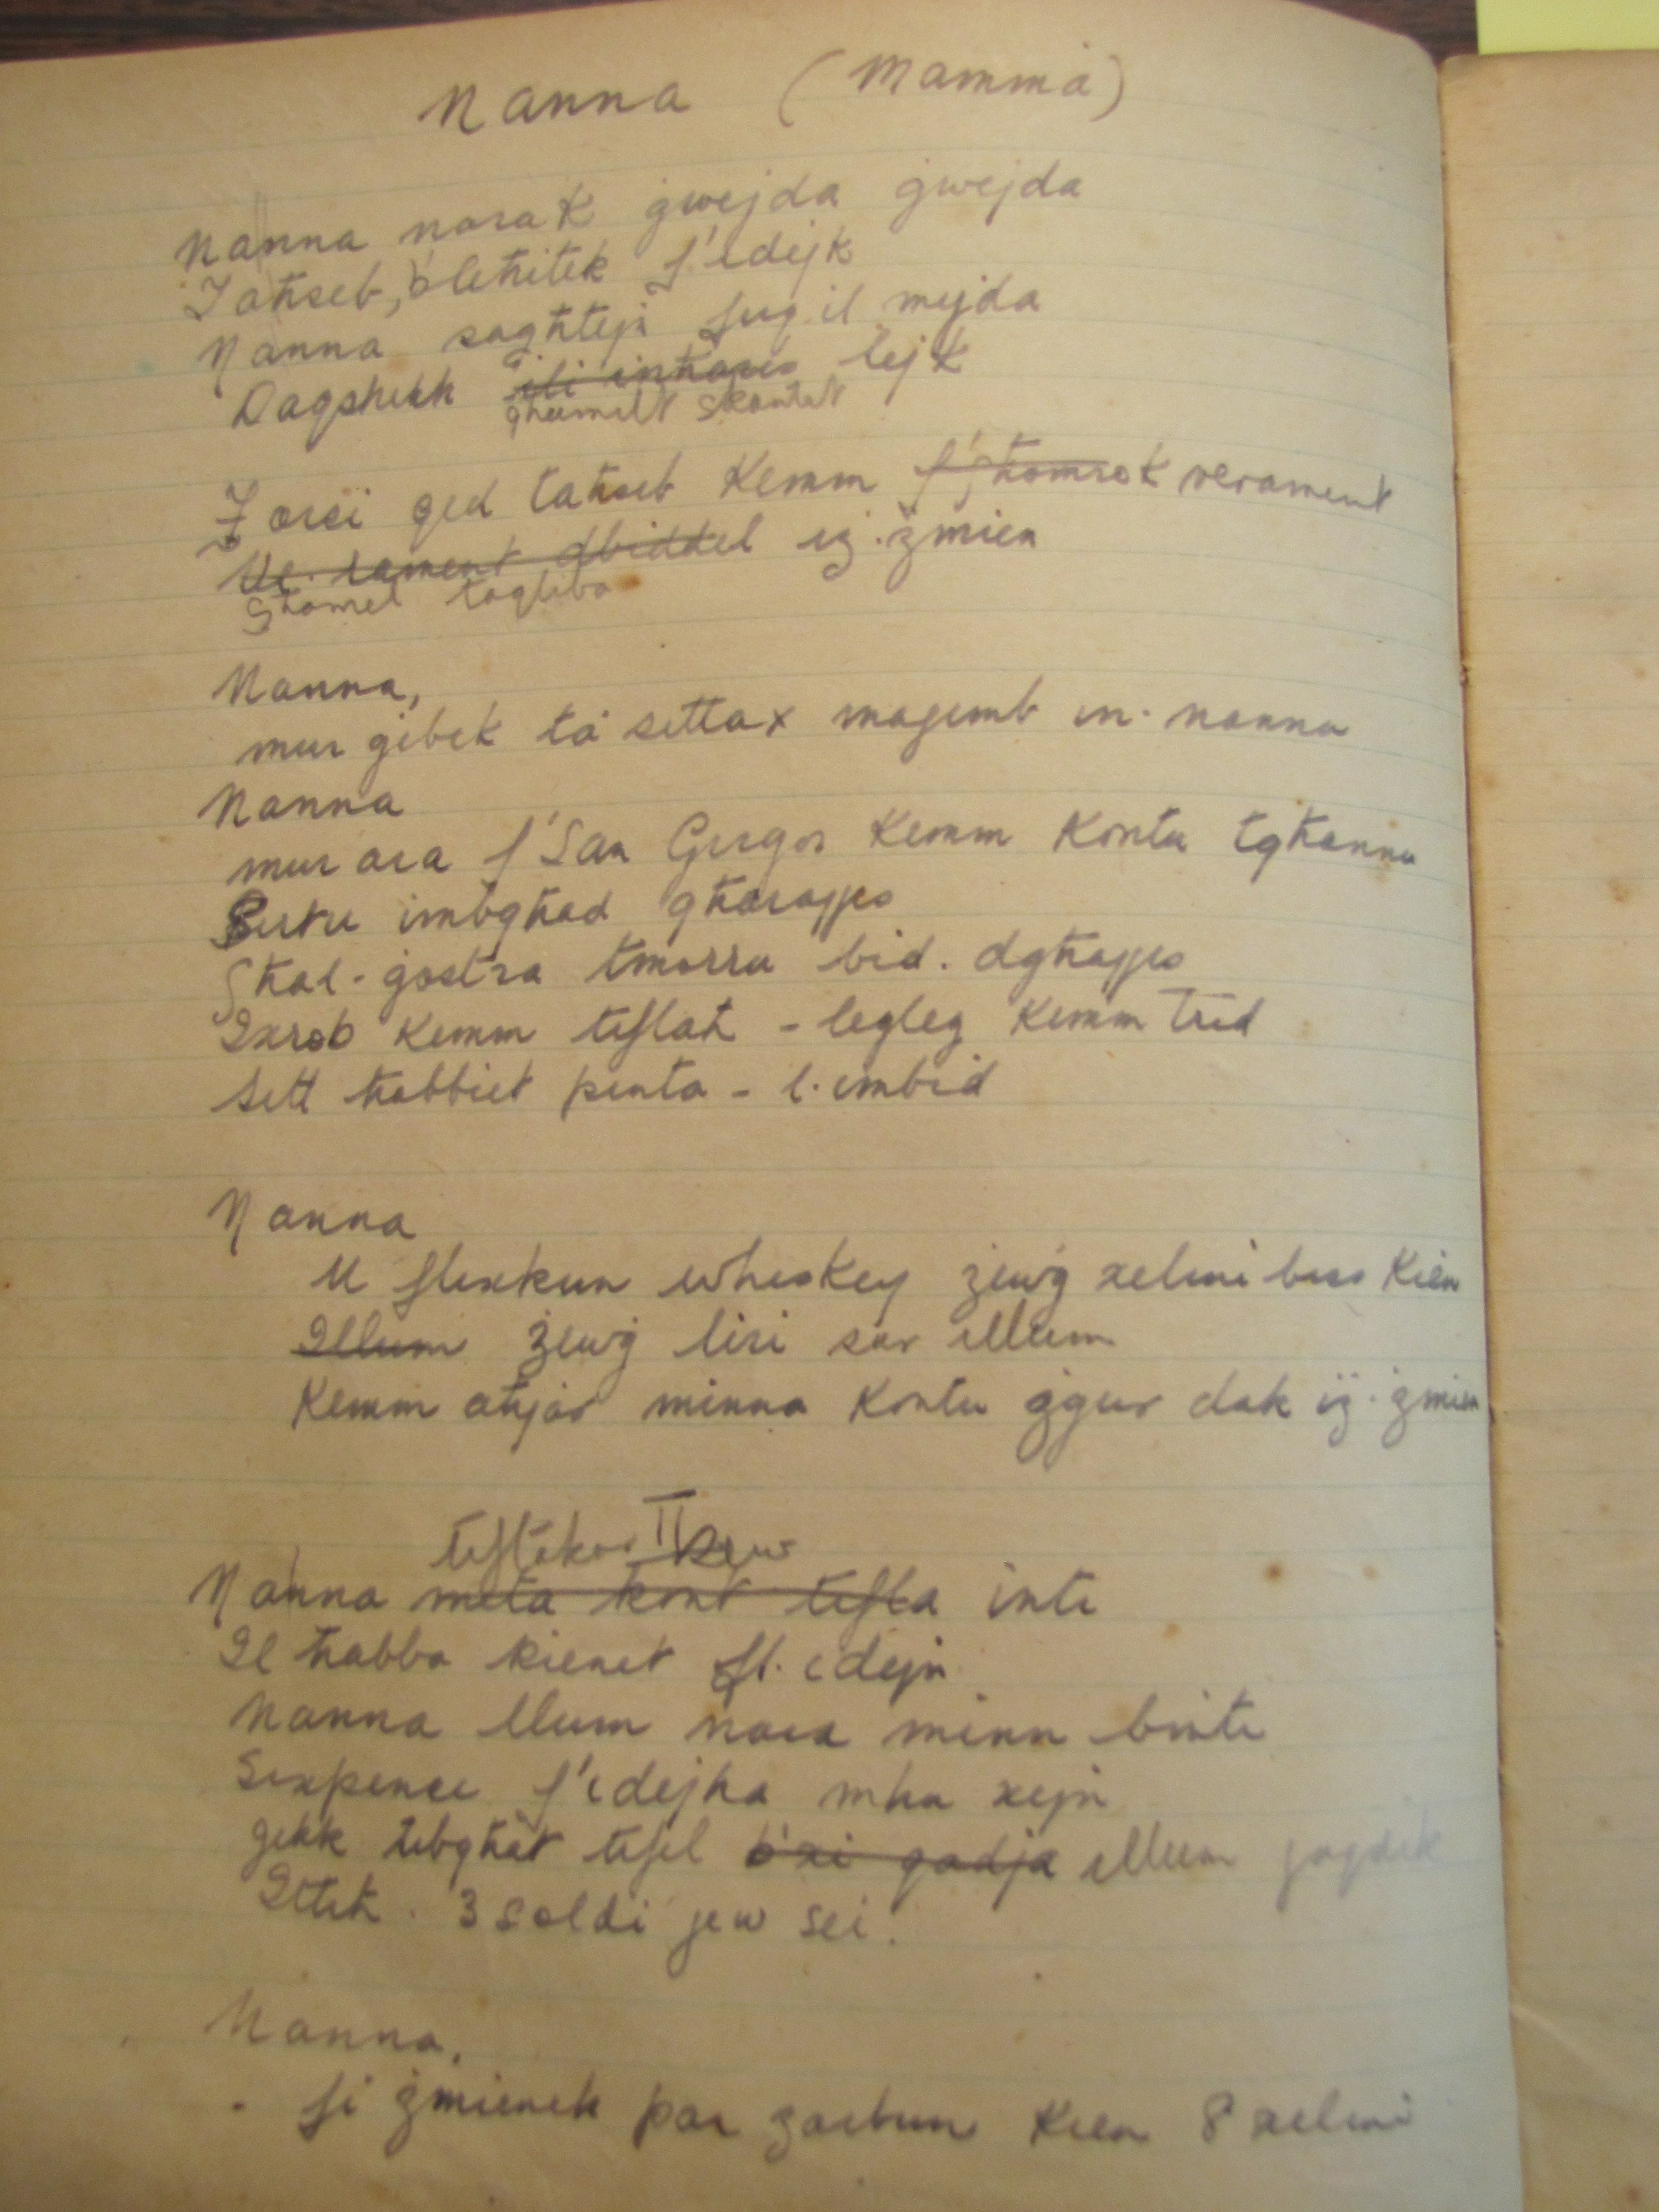 Nanna (Mamma)
Nanna narak ġwejda ġwejda
Taħseb, b'leħitek f'idejk
Nanna sagħtejn fuq il mejda
Daqshekk ili inħares lejk
għamilt skantat
Forsi qed taħseb kemm f'għomrok verament
Verament tbiddel iż-żmien
Għamel taqliba
Nanna,
mur ġibek ta settax maġenb in-nannu
Nanna
mur ara f'San Girgor kemm kontu tgħannu
Sirku imbgħad għarajjes
Għal-ġostra tmorru bid-dgħajjes
Ixrob kemm tiflaħ - leqleq kemm trid
Sitt ħabbiet pinta - l-imbid
Nanna
U flixkun whiskey żewġ xelini biss kien
Illum żewġ liri sar illum
Kemm aħjar minna kontu ġġur dak iż-żmien
tiftakar II
Nanna meta kont tifla inti
Il ħabba kienet fl-idejn
Nanna llum nara minn binti
Sixpence f'idejha mhu xejn
Jekk tibgħat tifel b'xi qadja illum jgħidlek
Ittik 3 soldi jew sei.
Nanna,
fi żmienek par żarbun kien 8 xelini